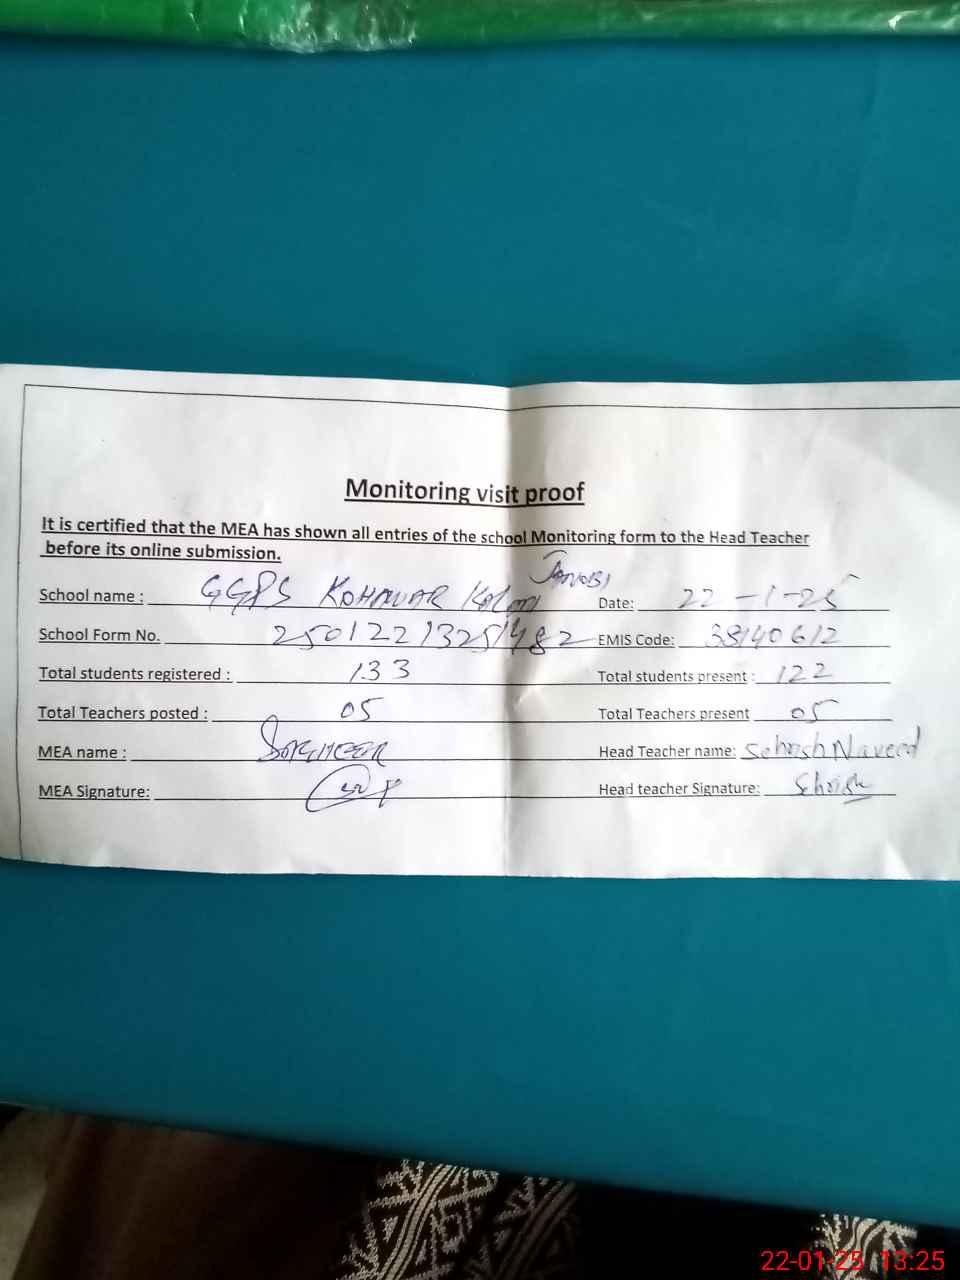 Monitoring visit proof
It is certified that the MEA has shown all entries of the school Monitoring form to the Head Teacher
before its online submission.
School name : GGPS KOHAWAR Janobi Date: 22-1-25
School Form No. 25012213251482 EMIS Code: 38140612
Total students registered : 133 Total students present : 122
Total Teachers posted : 05 Total Teachers present 05
MEA name : Head Teacher name: Sehrish Naveed
MEA Signature: Head teacher Signature: Sehrish
22-01-25 13:25